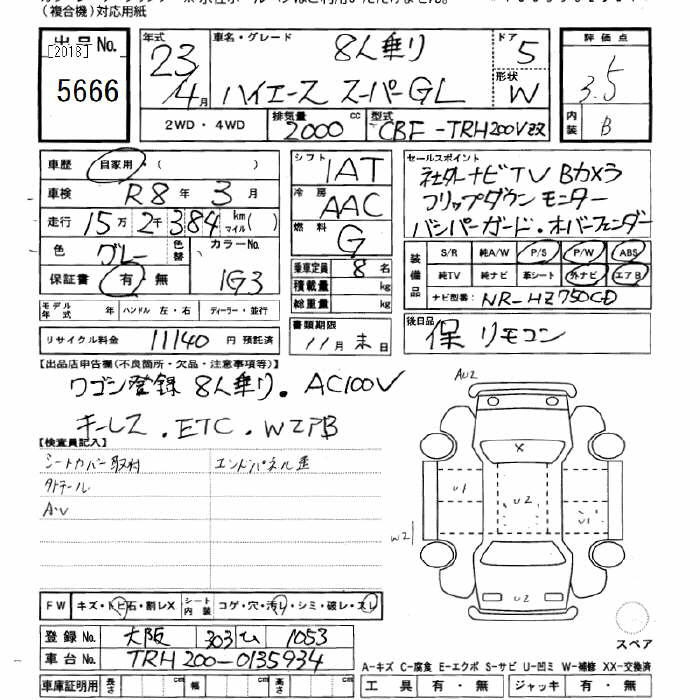 (複合機)対応用紙
出品No.
[2018]
5666
年式 車名・グレード 8人乗り ドア 5
23
4月 ハイエース スーパーGL 形状 W
2WD・4WD 排気量 2000 cc 型式 CBF-TRH200V改
評価点
3.5
内装 B
車歴 自家用 ( )
車検 R8年 3月
走行 15万2千384 km マイル( )
色 グレー 色替 カラーNo. 1G3
保証書 有・無
モデル年式 年 ハンドル 左・右 ディーラー・並行
リサイクル料金 11140 円 預託済
シフト 1AT
冷房 AAC
燃料 G
乗車定員 8名
積載量 kg
総重量 kg
書類期限
11月末日
セールスポイント
社外ナビTV Bカメラ
フリップダウンモニター
バンパーガード・オバーフェンダー
装備品 S/R 純A/W P/S P/W ABS
純TV 純ナビ 革シート 外ナビ エアB
ナビ型番: NR-HZ750CD
後日品 保 リモコン
【出品店申告欄(不良箇所・欠品・注意事項等)】
ワゴン登録 8人乗り. AC100V
キーレス. ETC. WエアB
【検査員記入】
シートカバー取材 エンドパネル歪
外テール
A・U
AU2
X
U1
U2
U1
W2
U2
FW キズ・トビ石・割レX シート内装 コゲ・穴・汚レ・シミ・破レ・スレ
登録No. 大阪 303 ひ 1053
車台No. TRH200-0135934
車庫証明用 長さ cm 幅 cm 高さ cm
スペア
A-キズ C-腐食 E-エクボ S-サビ U-凹ミ W-補修 XX-交換済
工具 有・無 ジャッキ 有・無